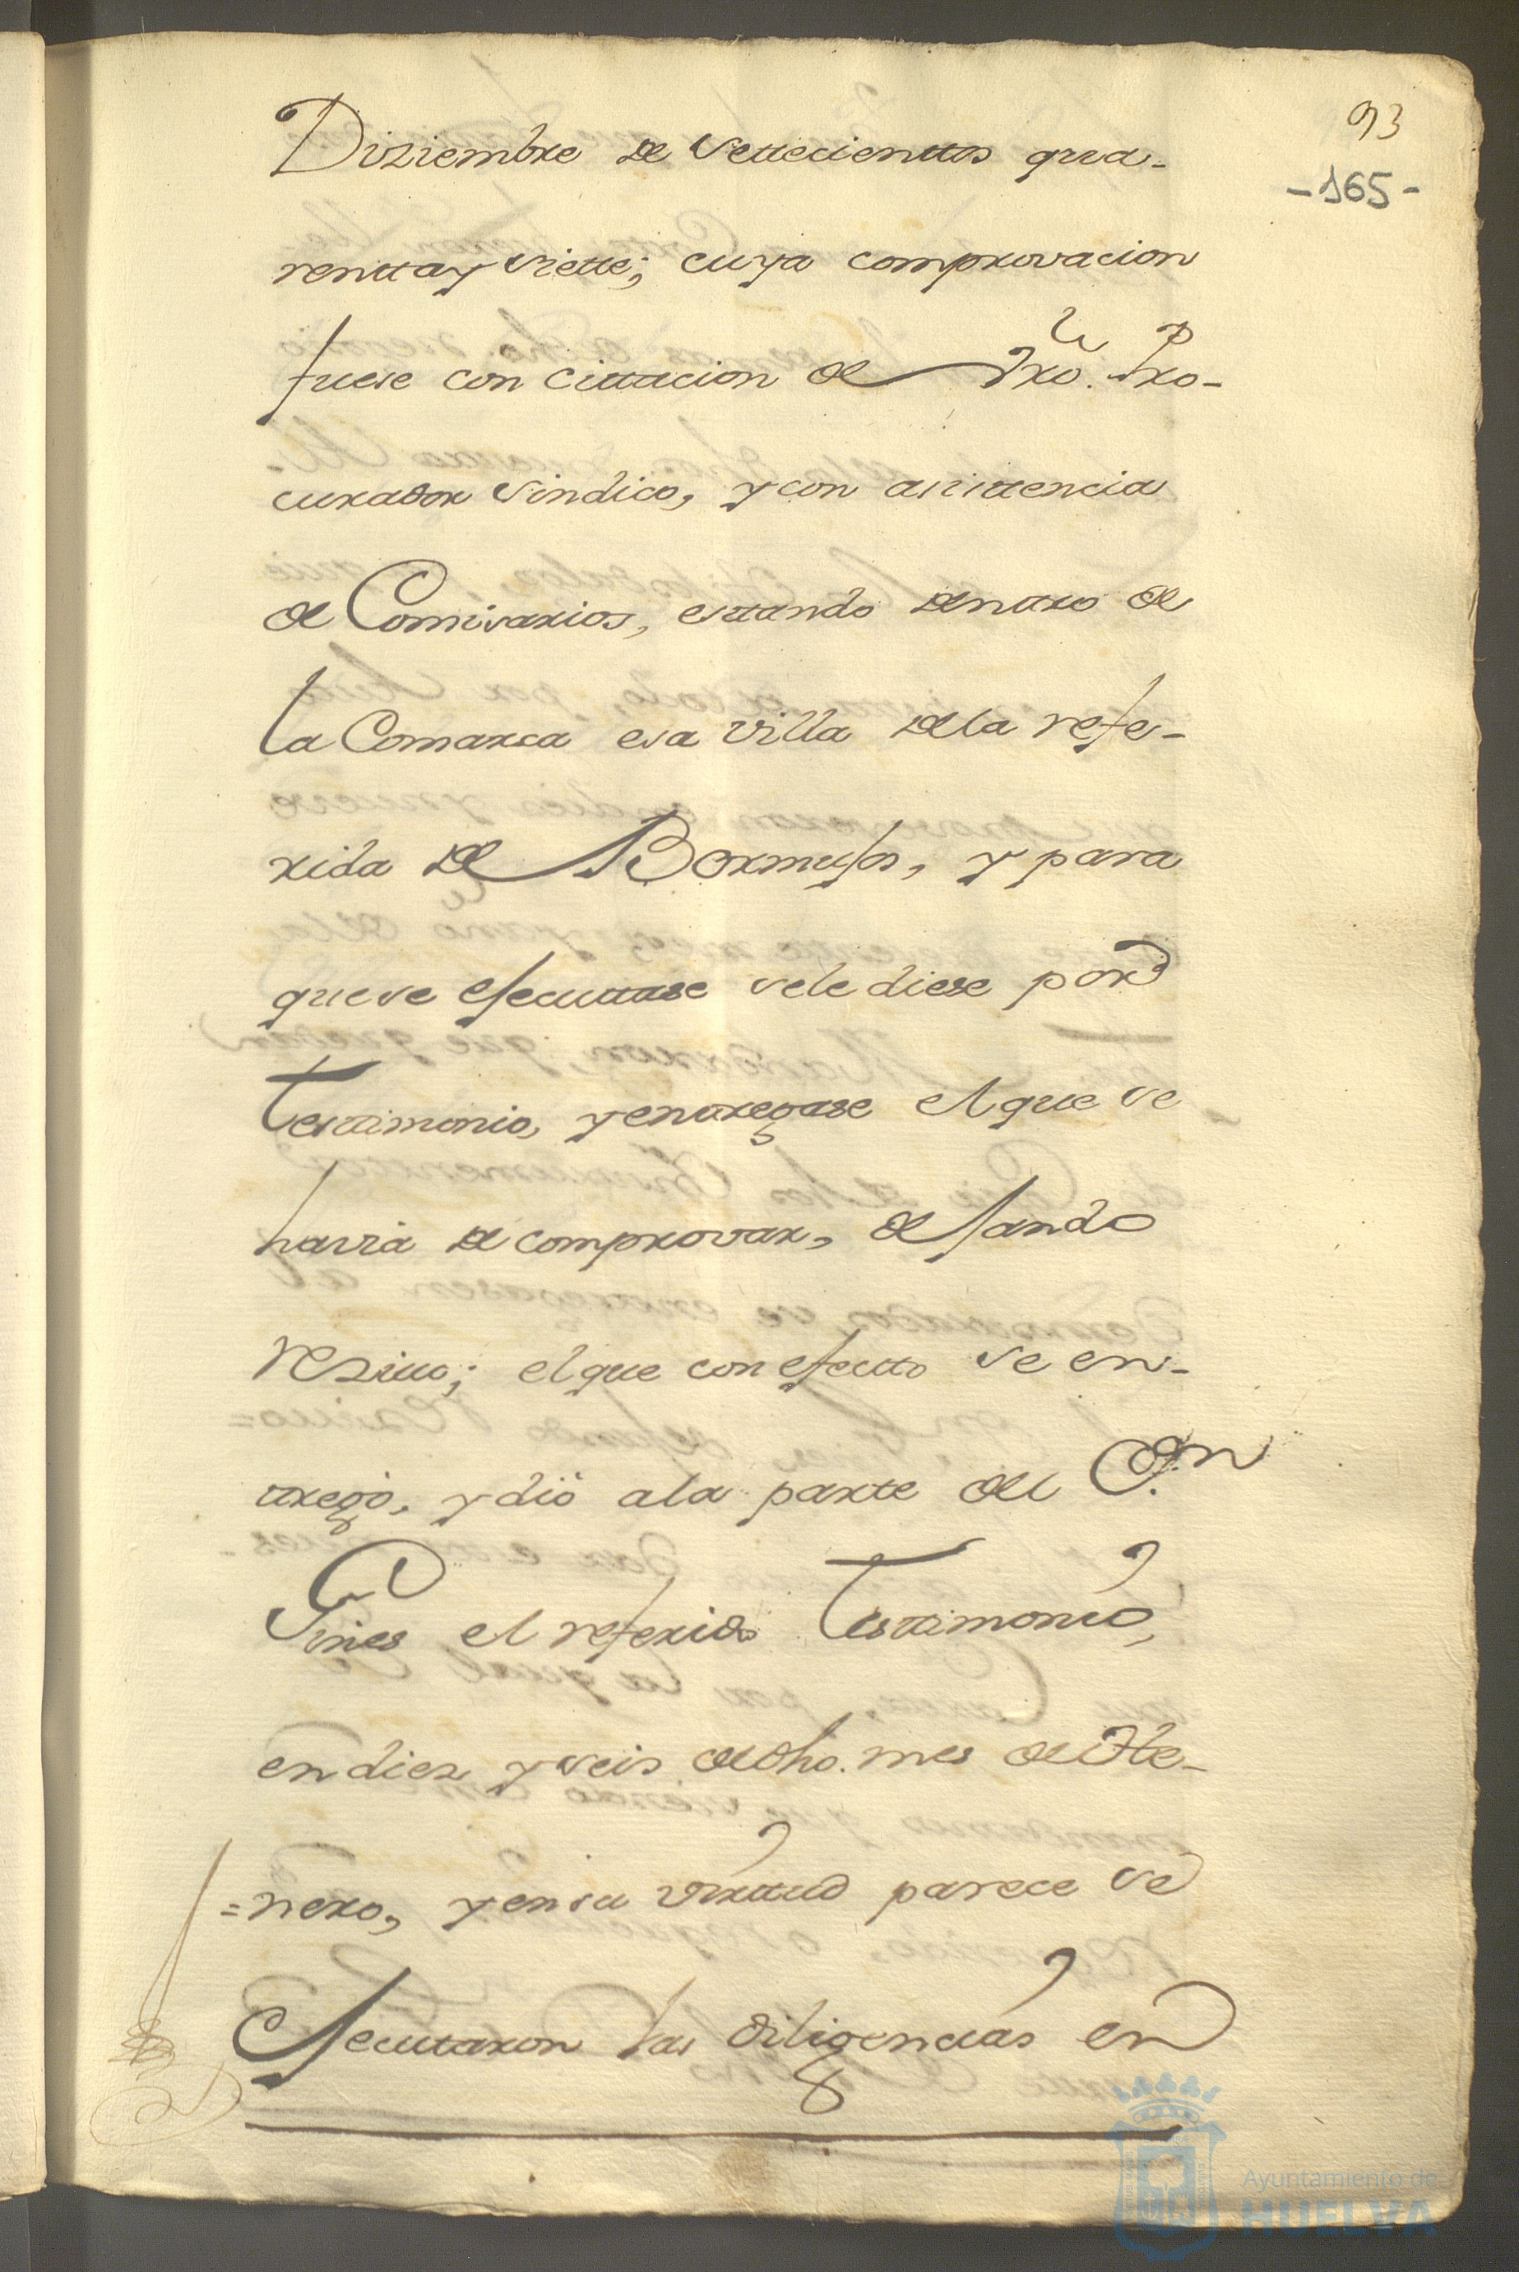 93
-165-
Diziembre de settecientos qua-
renttay siette; cuya comprovacion
fuese con cittacion de Nro. Pro-
curador sindico, y con asisttencia
de Comisarios, esttando denttro de
la Comarca esa villa dela refe-
rida de Bormujos, y para
quese ejecuttase sele diese por
Testtimonio, y enttregase el que se
havia de comprovar, dejando
rezivo; el que con efectto se en-
ttregó, y dió ala parte del
Gines el referido Testtimonio,
en diez y seis de dho. mes de He-
=nero, y en su virttud parece se
Ejecutaron las diligencias en
Ayuntamiento de
HUELVA